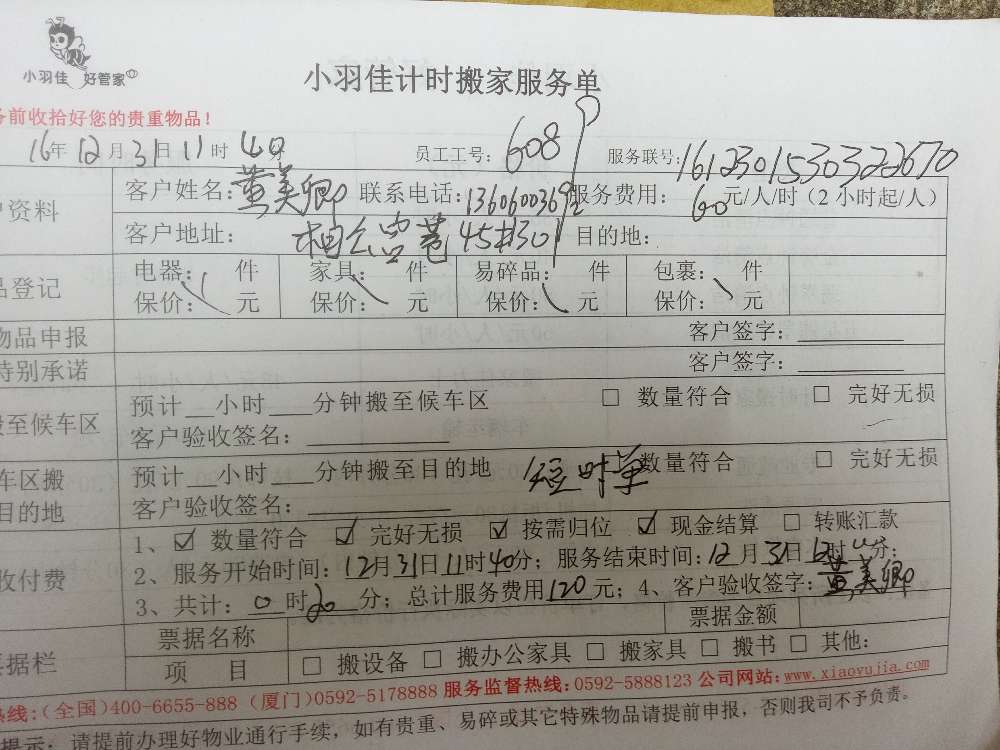 小羽佳 好管家
小羽佳计时搬家服务单
务前收拾好您的贵重物品！
16年12月31日11时40分 员工工号：608 服务联号：1612301530322670
户资料 客户姓名：黄美卿 联系电话： 服务费用：60元/人/时（2小时起/人）
客户地址： 45#301 目的地：
品登记 电器： 件 家具： 件 易碎品： 件 包裹： 件
保价： 元 保价： 元 保价： 元 保价： 元
物品申报 客户签字：
特别承诺 客户签字：
搬至候车区 预计 小时 分钟搬至候车区 □ 数量符合 □ 完好无损
客户验收签名：
车区搬 预计 小时 分钟搬至目的地 短时单 数量符合 □ 完好无损
目的地 客户验收签名：
1、☑ 数量符合 ☑ 完好无损 ☑ 按需归位 ☑ 现金结算 □ 转账汇款
收付费 2、服务开始时间：12月31日11时40分；服务结束时间：12月31日12时 分；
3、共计：0时20分；总计服务费用120元；4、客户验收签字：黄美卿
票据栏 票据名称 票据金额
项 目 □ 搬设备 □ 搬办公家具 □ 搬家具 □ 搬书 □ 其他：
热线：（全国）400-6655-888（厦门）0592-5178888 服务监督热线：0592-5888123 公司网站：www.xiaoyujia.com
提示：请提前办理好物业通行手续，如有贵重、易碎或其它特殊物品请提前申报，否则我司不予负责。